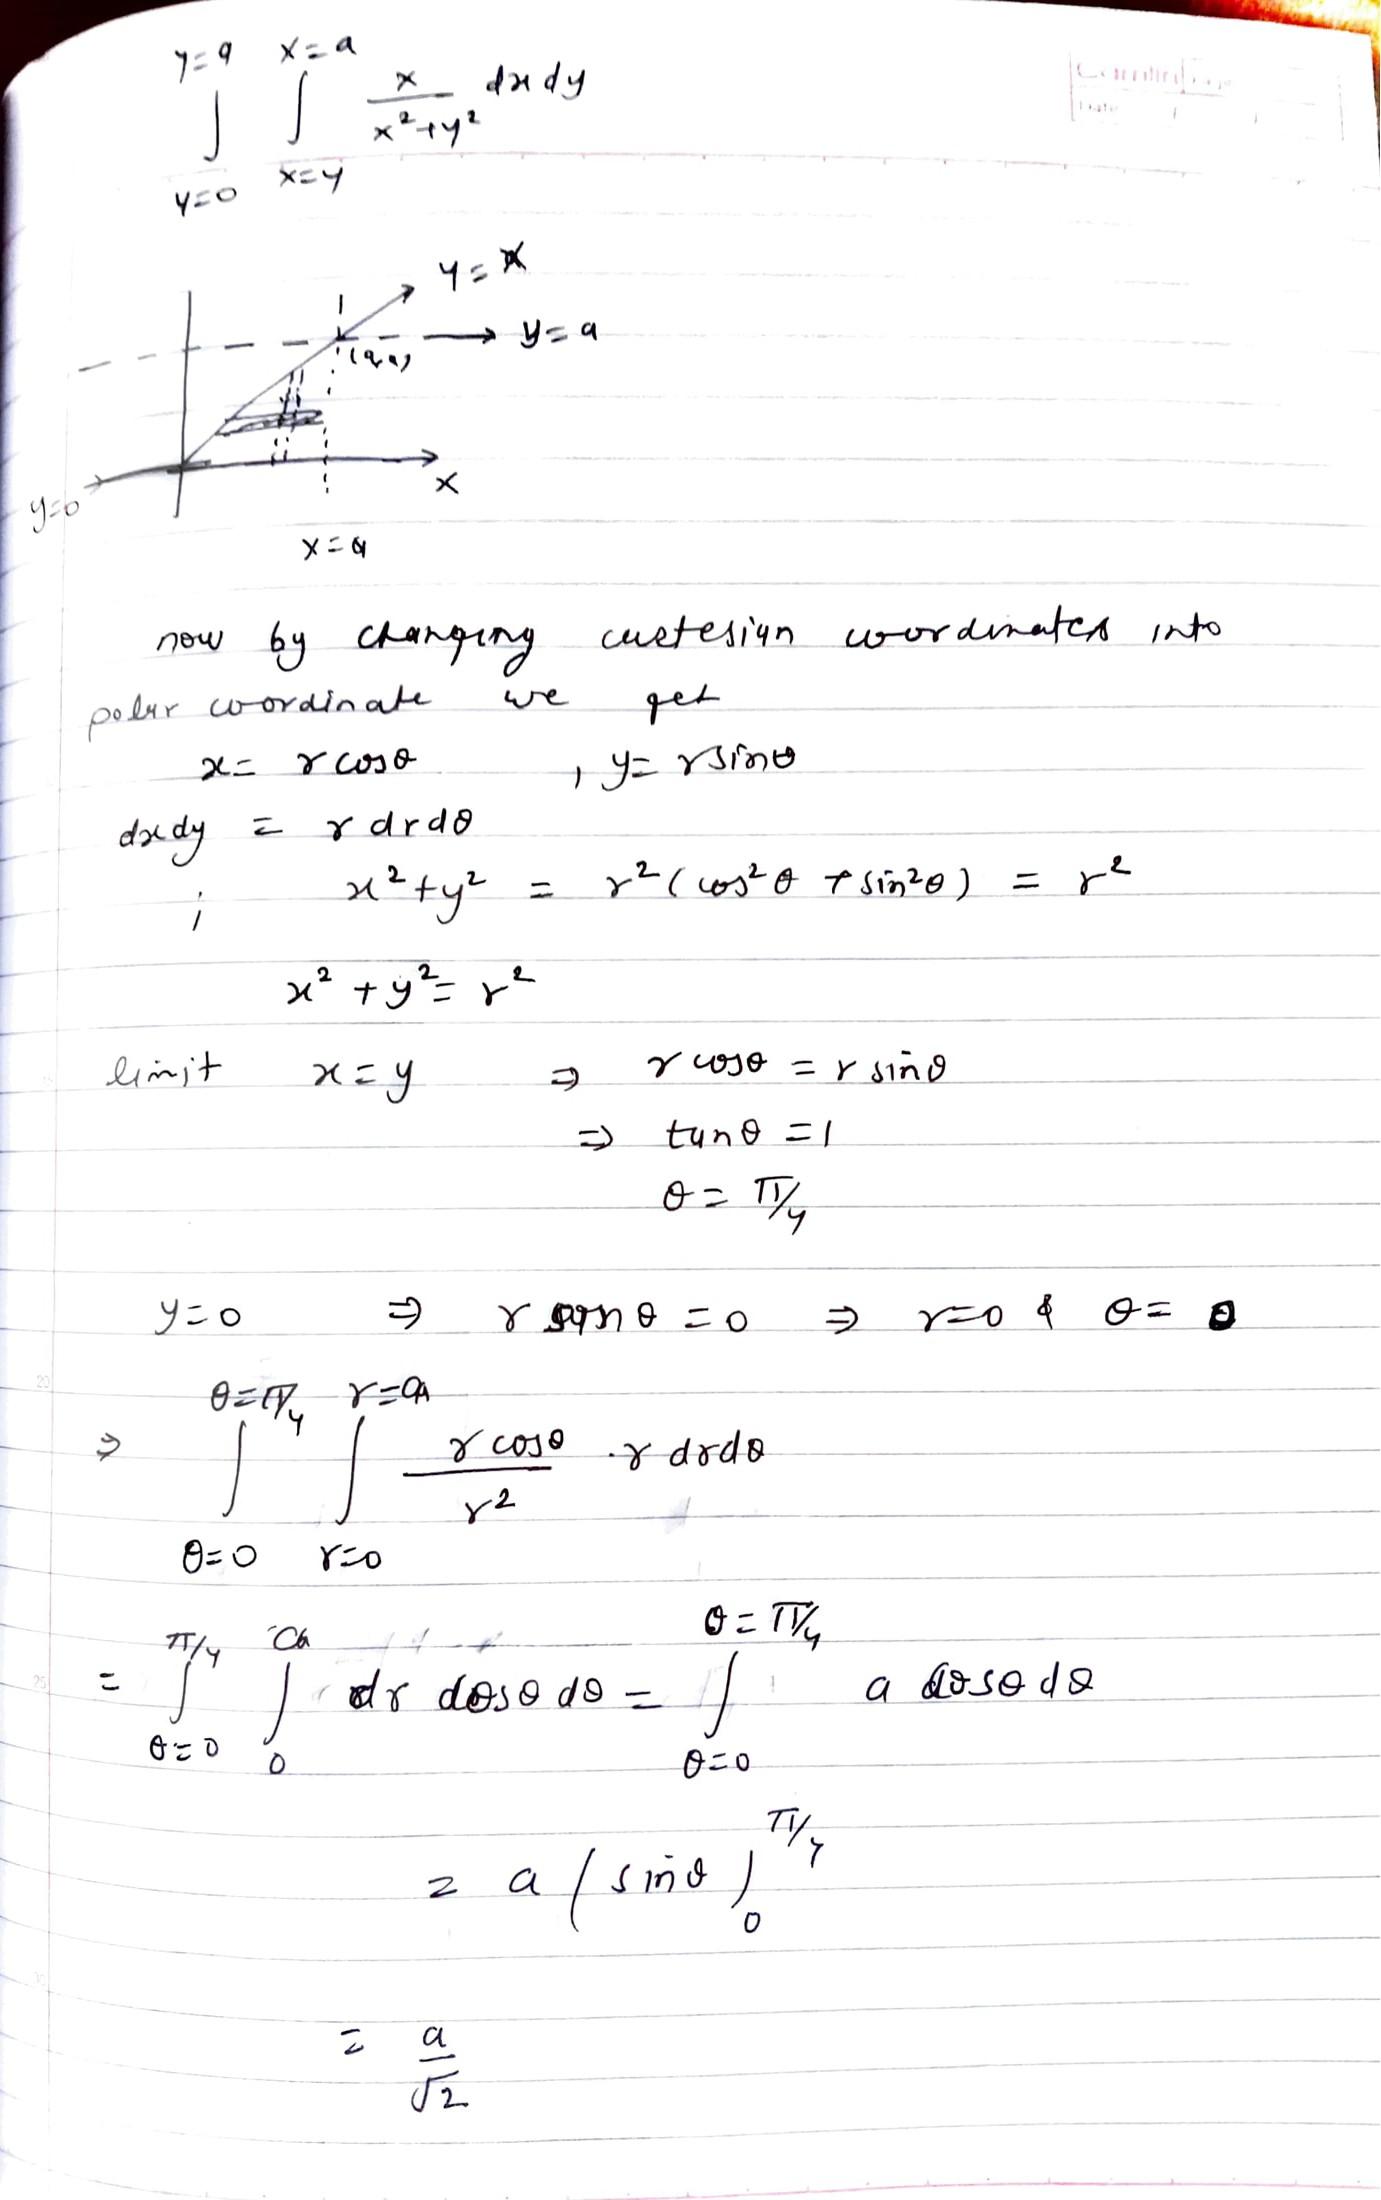 y=a x=a
∫ ∫ x/(x²+y²) dx dy
y=0 x=y
y = x
y = a
(a,a)
y=0
x
x = a
now by changing cartesian coordinates into
polar coordinate we get
x = r cosθ , y = r sinθ
dxdy = r dr dθ
; x²+y² = r² (cos²θ + sin²θ) = r²
x² + y² = r²
limit x = y ⇒ r cosθ = r sinθ
⇒ tanθ = 1
θ = π/4
y=0 ⇒ r sinθ = 0 ⇒ r=0 & θ = 0
θ=π/4 r=a
⇒ ∫ ∫ r cosθ/r² · r dr dθ
θ=0 r=0
π/4 a θ = π/4
= ∫ ∫ dr cosθ dθ = ∫ a cosθ dθ
θ=0 0 θ=0
= a (sinθ)₀^π/4
= a/√2